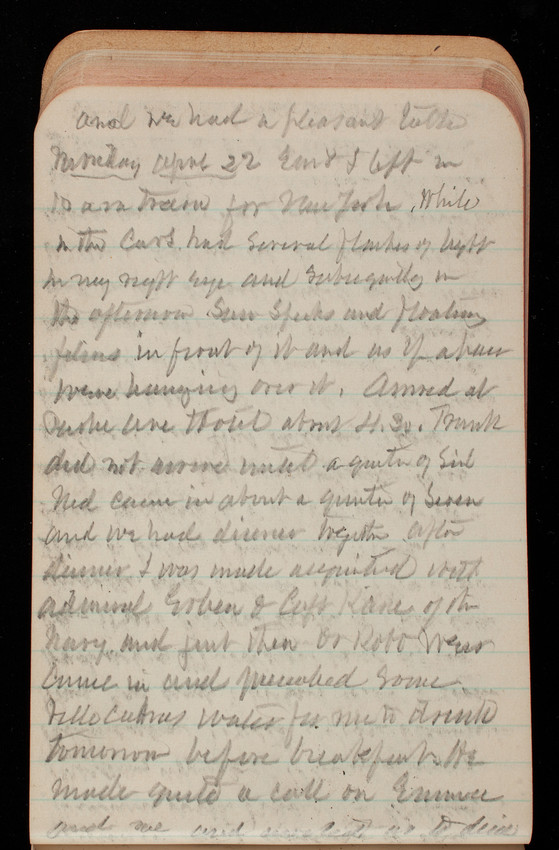 and we had a pleasant talk
Monday April 22 Em & I left in
10 a m train for New York. While
in the Cars had several flashes of light
in my right eye and subsequently in
the afternoon saw specks and floating
films in front of it and as if a hair
were hanging over it. Arrived at
ave Hotel about 4.30. Trunk
did not arrive until a quarter of Six
Ned came in about a quarter of Seven
and we had dinner together after
dinner I was made acquainted with
Admiral Erben & Capt Kane of the
Navy and just then Dr Robt Weir
came in and prescribed some
water for me to drink
tomorrow before breakfast. He
made quite a call on Emma
and me and